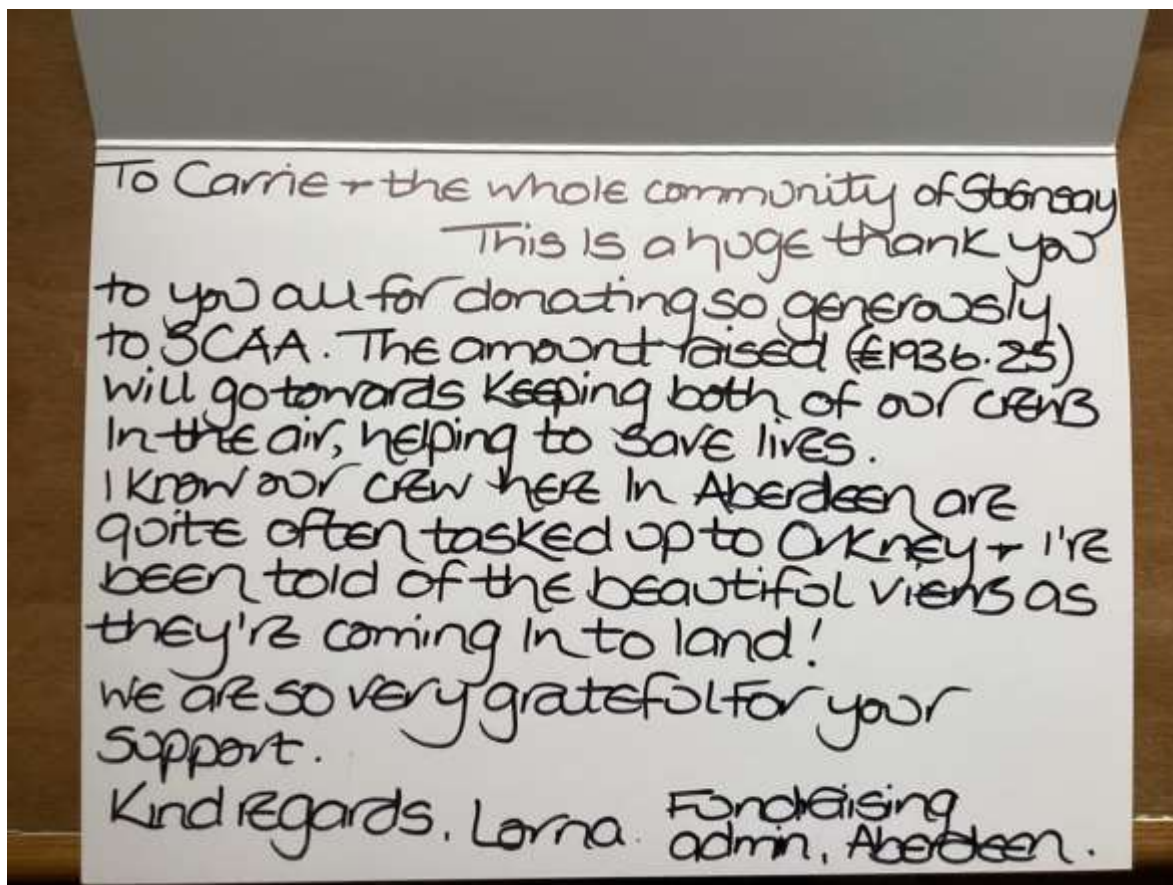 To Carrie + the whole community of Stronsay
This is a huge thank you
to you all for donating so generously
to SCAA. The amount raised (£1936.25)
will go towards keeping both of our crews
in the air, helping to save lives.
I know our crew here in Aberdeen are
quite often tasked up to Orkney + I've
been told of the beautiful views as
they're coming in to land!
We are so very grateful for your
support.
Kind regards, Lorna. Fundraising
admin, Aberdeen.